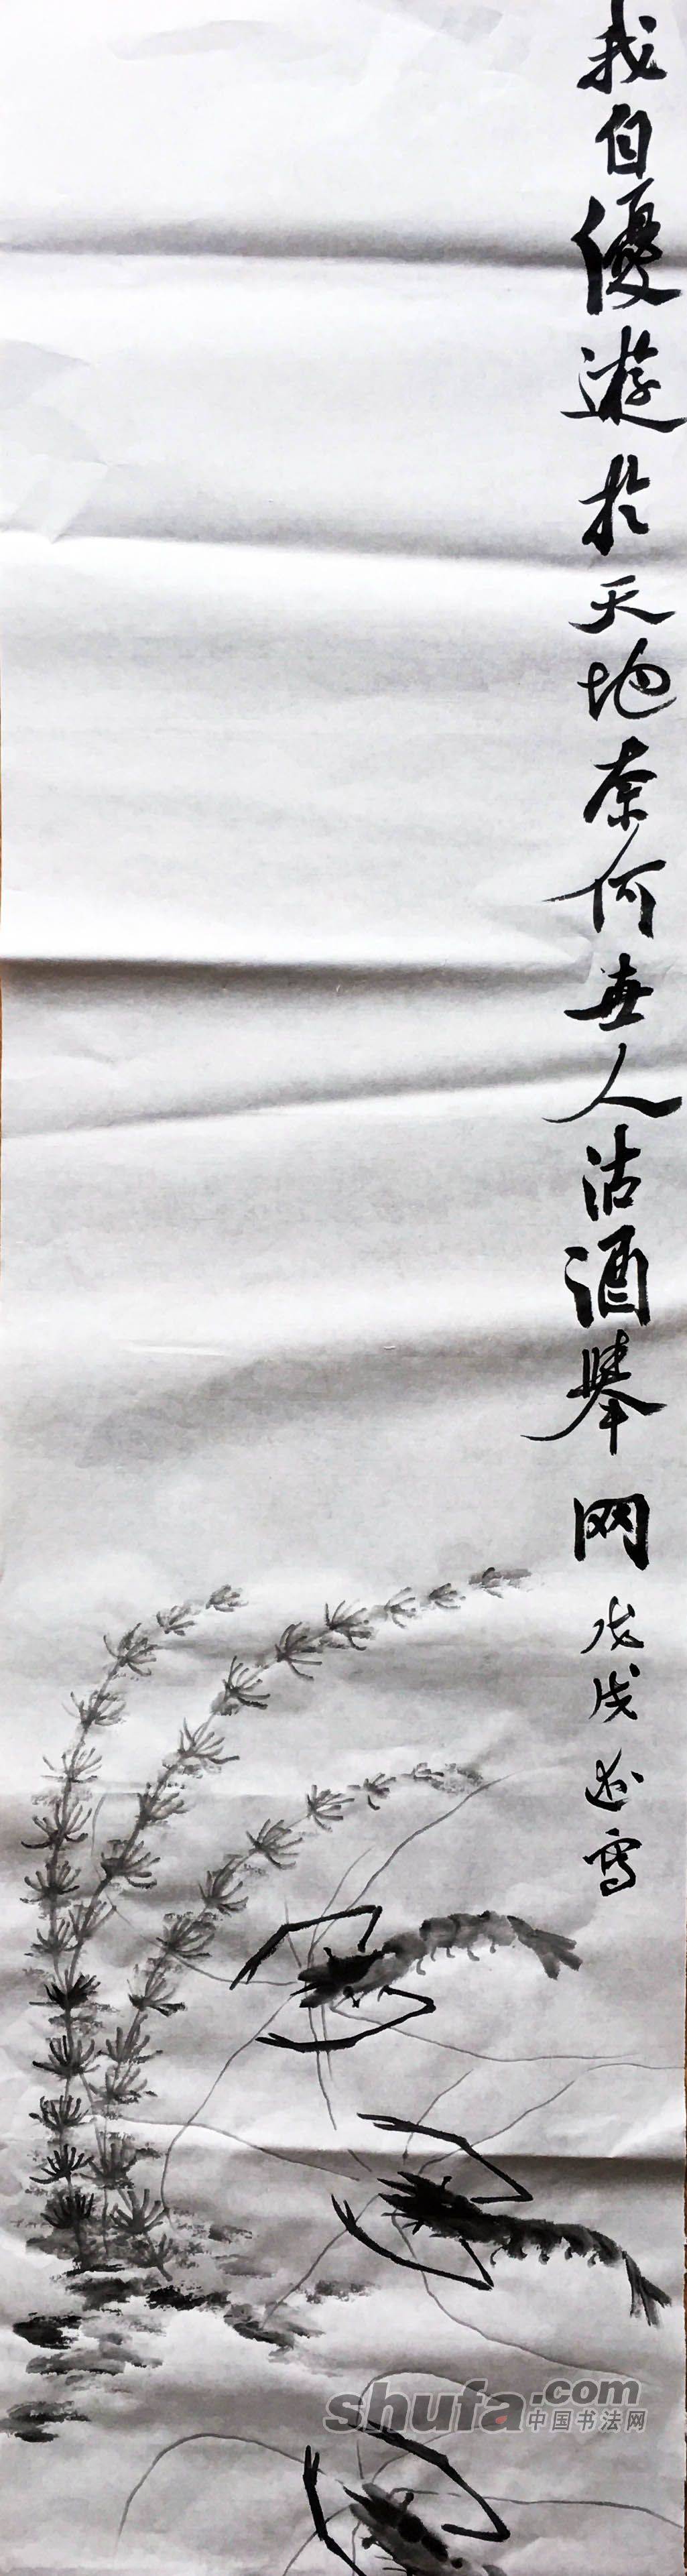 我自優遊於天地奈何世人沽酒舉网
戊戌 寫
shufa.com
中国书法网